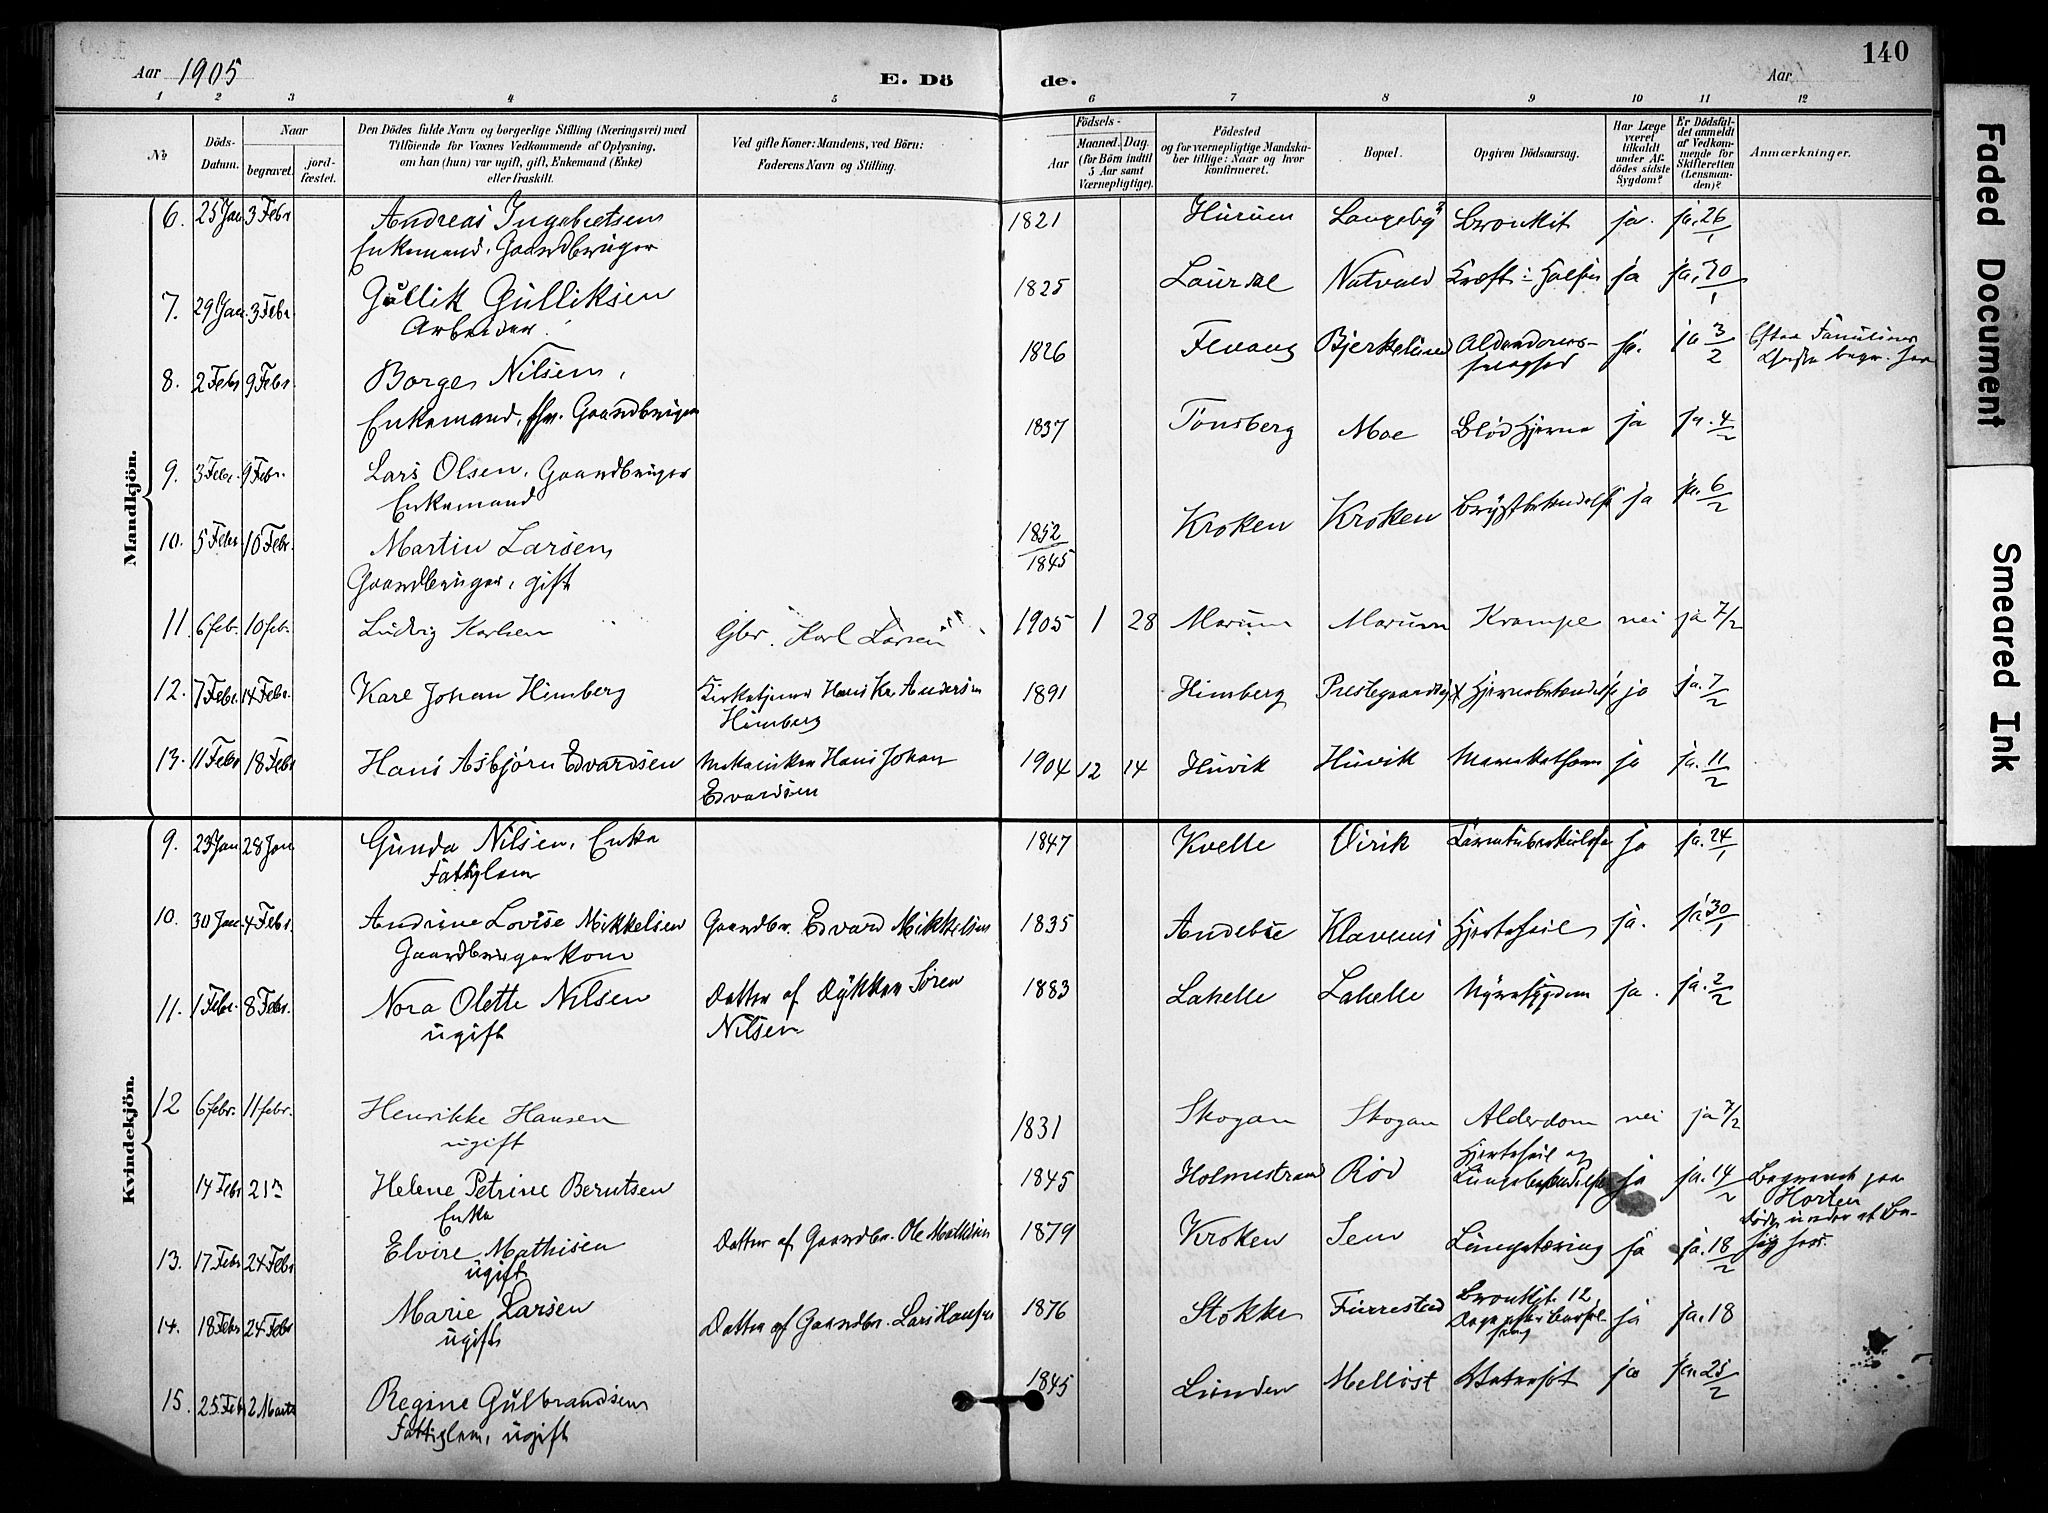 Aar 1905
E. Döde.
Aar
140
1 2 3 4 5 6 7 8 9 10 11 12
No.
Döds-Datum.
Naar
begravet.
jordfæstet.
Den Dödes fulde Navn og borgerlige Stilling (Næringsvei) med
Tilföiende for Voxnes Vedkommende af Oplysning,
om han (hun) var ugift, gift, Enkemand (Enke)
eller fraskilt.
Ved gifte Koner: Mandens, ved Börn:
Faderens Navn og Stilling.
Födsels-
Aar
Maaned.
Dag.
(for Börn indtil
5 Aar samt
Værnepligtige).
Födested
og for værnepligtige Mandska-
ber tillige: Naar og hvor
konfirmeret.
Bopæl.
Opgiven Dödsaarsag.
Har Læge
været
tilkaldt
under Af-
dödes sidste
Sygdom?
Er Dödsfal-
det anmeldt
af Vedkom-
mende for
Skifteretten
(Lensman-
den)?
Anmærkninger.
Mandkjön.
6. 25 Jan 3 Febr Andreas Ingebretsen 1821 Hurum Langeby? Bronkit ja. ja. 26/1
Enkemand. Gaardbruger
7. 29 Jan. 3 Febr. Gullik Gulliksen 1825 Laurdal Natvald Kræft i Halsen ja ja. 30/1
Arbeider.
8. 2 Febr 9 Febr Borger Nilsen, 1826 Fevang Bjerkelund Alderdoms- ja. ja 3/2 Efter Familiens
svaghed Ønske begr. her
Enkemand, fhv. Gaardbruger
9. 3 Febr. 9 Febr. Lars Olsen, Gaardbruger 1837 Tønsberg Moe Blød Hjerne ja ja. 4/2
Enkemand
10. 5 Febr. 10 Febr. Martin Larsen 1852/1845 Kroken Kroken Brystbetændelse ja ja. 6/2
Gaardbruger, gift
11. 6 febr. 10 feb. Ludvig Karlsen Gbr. Karl Larsen 1905 1 28 Marum Marum Krampe nei ja 7/2
12. 7 Febr. 14 Febr. Karl Johan Himberg Kirketjener Hans Kr. Andersen 1891 Himberg Hjernebetændelse ja ja. 7/2
Himberg
13. 11 Febr 18 Febr Hans Asbjørn Edvardsen Mekaniker Hans Johan 1904 12 14 Huvik Huvik ja ja. 11/2
Edvardsen
Kvindekjön.
9. 23 Jan 28 Jan Gunda Nilsen, Enke 1847 Kvelle Virik Tarmtuberkulose ja ja. 24/1
Fattiglem
10. 30 Jan. 4 Febr. Andrine Lovise Mikkelsen Gaardbr. Edvard Mikkelsen 1835 Andebu Klavenes Hjertefeil ja. ja 30/1
Gaardbrugerkone
11. 1 Febr. 8 Febr. Nora Olette Nilsen Datter af Dykker Søren 1883 Lahelle Lahelle Nyresygdom ja. ja. 2/2
ugift Nilsen
12 6 febr. 11 febr. Henrikke Hansen 1831 Skogan Skogan Alderdom nei ja 7/2
ugift
14 Febr 21 " Helene Petrine Berntsen 1845 Holmestrand Rød Hjertefeil og Lungebetændelse ja ja. 14/2 Begravet paa
Enke Horten
Døde under et Be-
søg her.
13. 17 Febr 24 Febr Elvire Mathisen Datter af Gaardbr. Ole Mathisen 1879 Kroken Sem Lungetæring ja ja. 18/2
ugift
14. 18 Febr 24 Febr Marie Larsen Datter af Gaardbr. Lars Hansen 1876 Stokke Furrestad Bronkit. 12 ja ja. 18
ugift Dage efter Barsel-
seng
15. 25 Feb 2 Marts Regine Gulbrandsen 1845 Lunden Melløst Vatersot ja ja. 25/2
Fattiglem, ugift
Faded Document
Smeared Ink